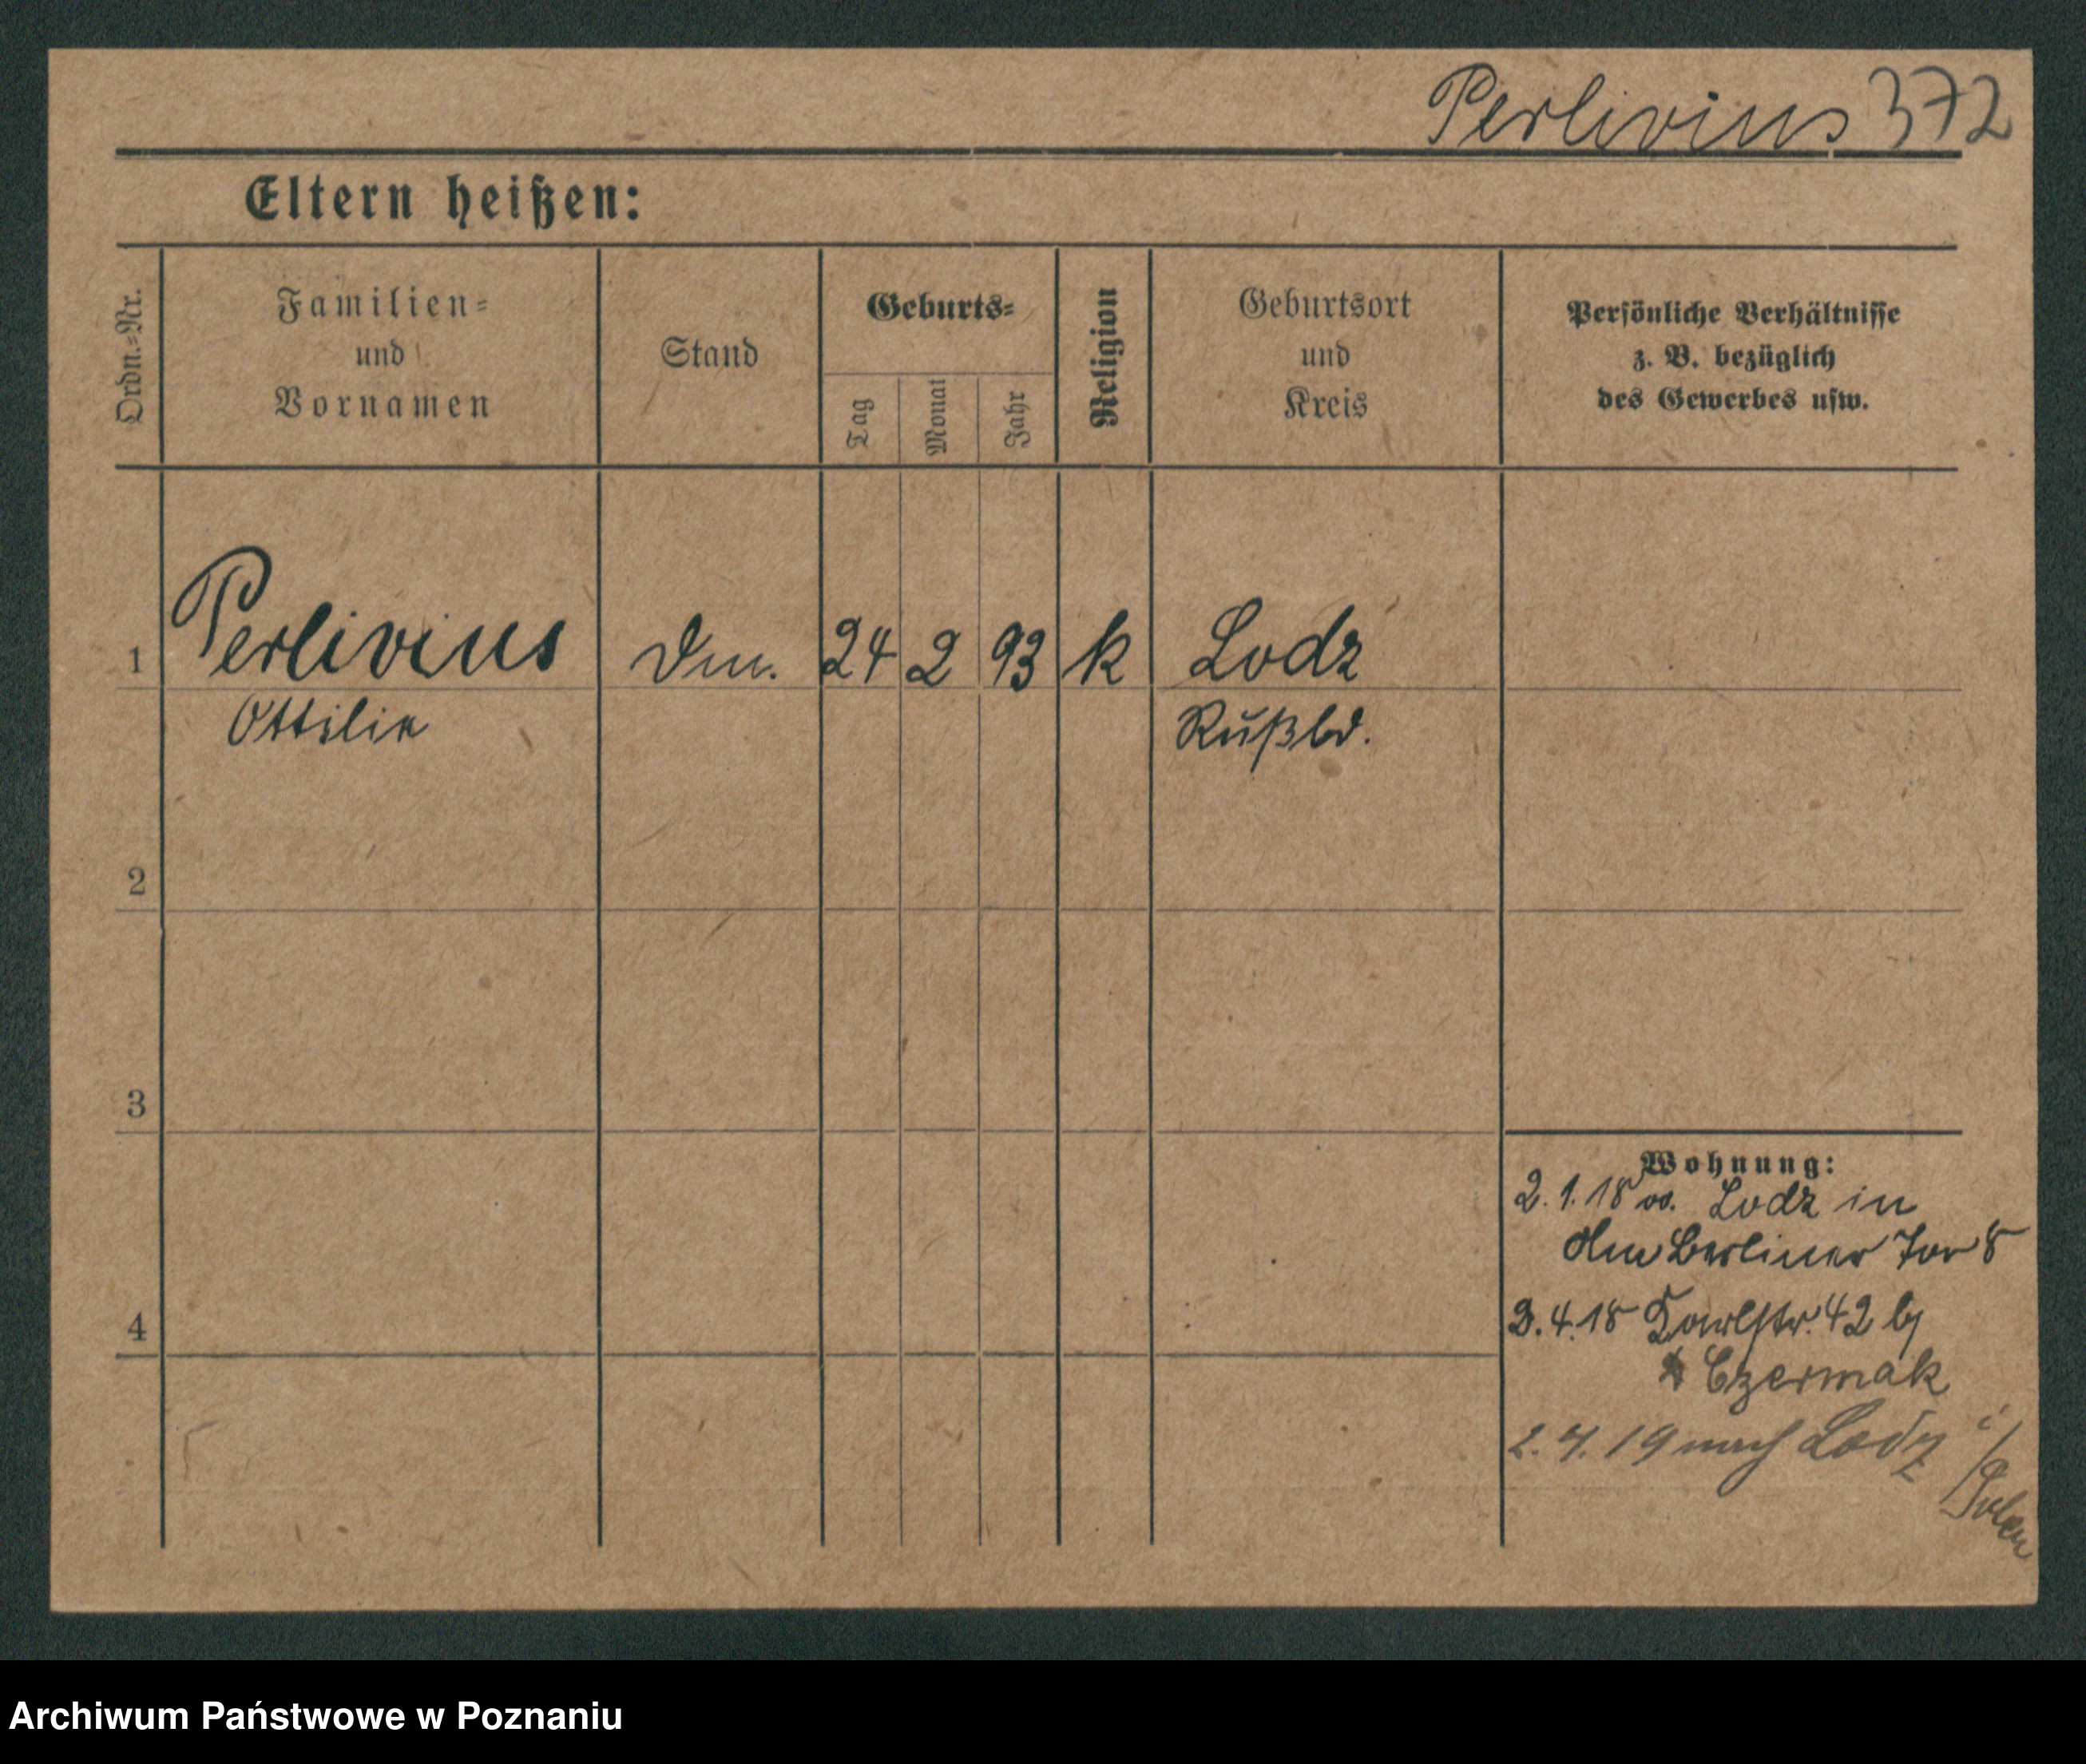 Perlivius 372
Eltern heißen:
Ordn.=Nr.
Familien=
und
Vornamen
Stand
Geburts=
Tag
Monat
Jahr
Religion
Geburtsort
und
Kreis
Persönliche Verhältnisse
z. B. bezüglich
des Gewerbes usw.
1 Perlivius 24 2 93 k Lodz
Ottilie Rußld.
2
3
4
Wohnung:
2.1.18 Lodz in
Am Berliner Tor 8
3.4.18 Karlstr. 42 b/
Czermak
2.4.19 nach Lodz i/
Polen
Archiwum Państwowe w Poznaniu